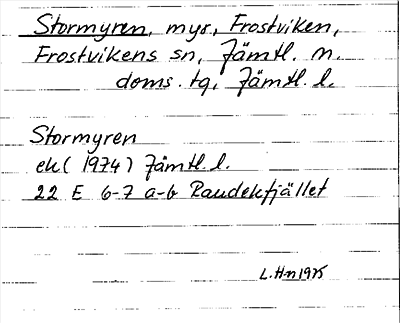 Stormyren, myr, Frostviken,
Frostvikens sn, Jämtl. n.
doms. tg, Jämtl. l.
Stormyren
ek (1974) Jämtl. l.
22 E 6-7 a-b Raudekfjället
L.Hn 1975